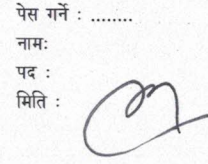 पेस गर्ने : ........
नामः
पद :
मिति :